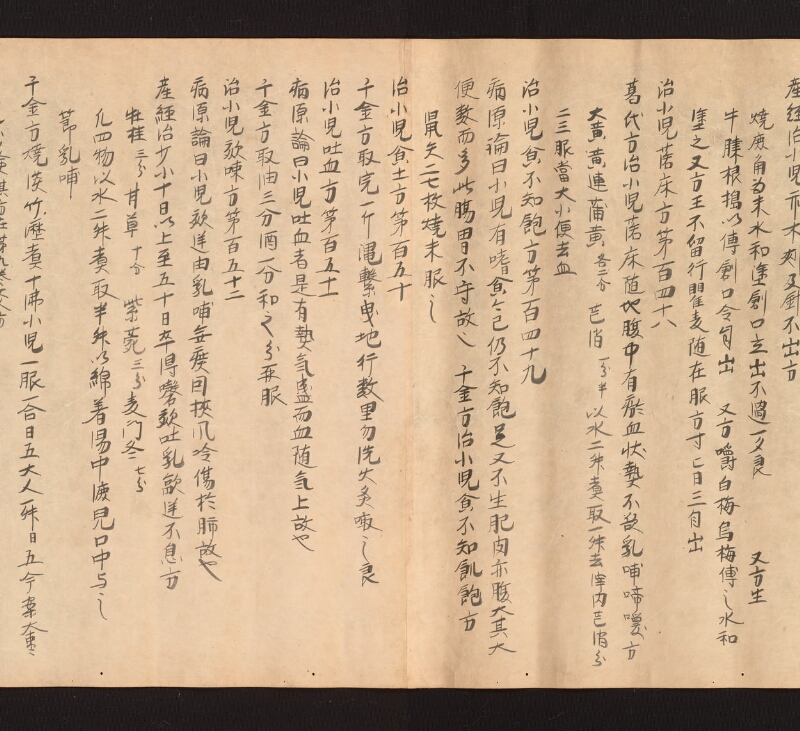 産経治小児竹木刺及針不出方
焼鹿角為末水和塗創口立出不過一夕良　又方生
牛膝根搗以傅創口令自出　又方嚼白梅烏梅傅之水和
塗之又方王不留行瞿麦随在服方寸匕日三自出
治小児落床方第百四十八
葛氏方治小児落床随地腹中有瘀血状熱不欲乳哺啼喚方
大黄黄連蒲黄各二分芒消一分半以水二升煮取一升去滓内芒消分
二三服当大小便去血
治小児食不知飽方第百四十九
病源論曰小児有嗜食々已仍不知飽足又不生肥肉亦腹大其大
便数而多此腸胃不守故之　千金方治小児食不知飢飽方
鼠矢二七枚焼末服之
治小児食土方第百五十
千金方取完一斤縄繋曳地行数里勿洗火炙噉之良
治小児吐血方第百五十一
病原論曰小児吐血者是有熱気盛而血随気上故也
千金方取油三分酒一分和之分再服
治小児欬嗽方第百五十二
病原論曰小児欬逆由乳哺無度因挟風冷傷於肺故也
産経治少小十日以上至五十日卒得謦欬吐乳歐逆不息方
牡桂三分甘草十分紫菀三分麦門冬七分
凡四物以水二升煮取半升以綿著湯中渧児口中与之
節乳哺
千金方焼淡竹瀝煮十沸小児一服一合日五大人一升日五今案大棗